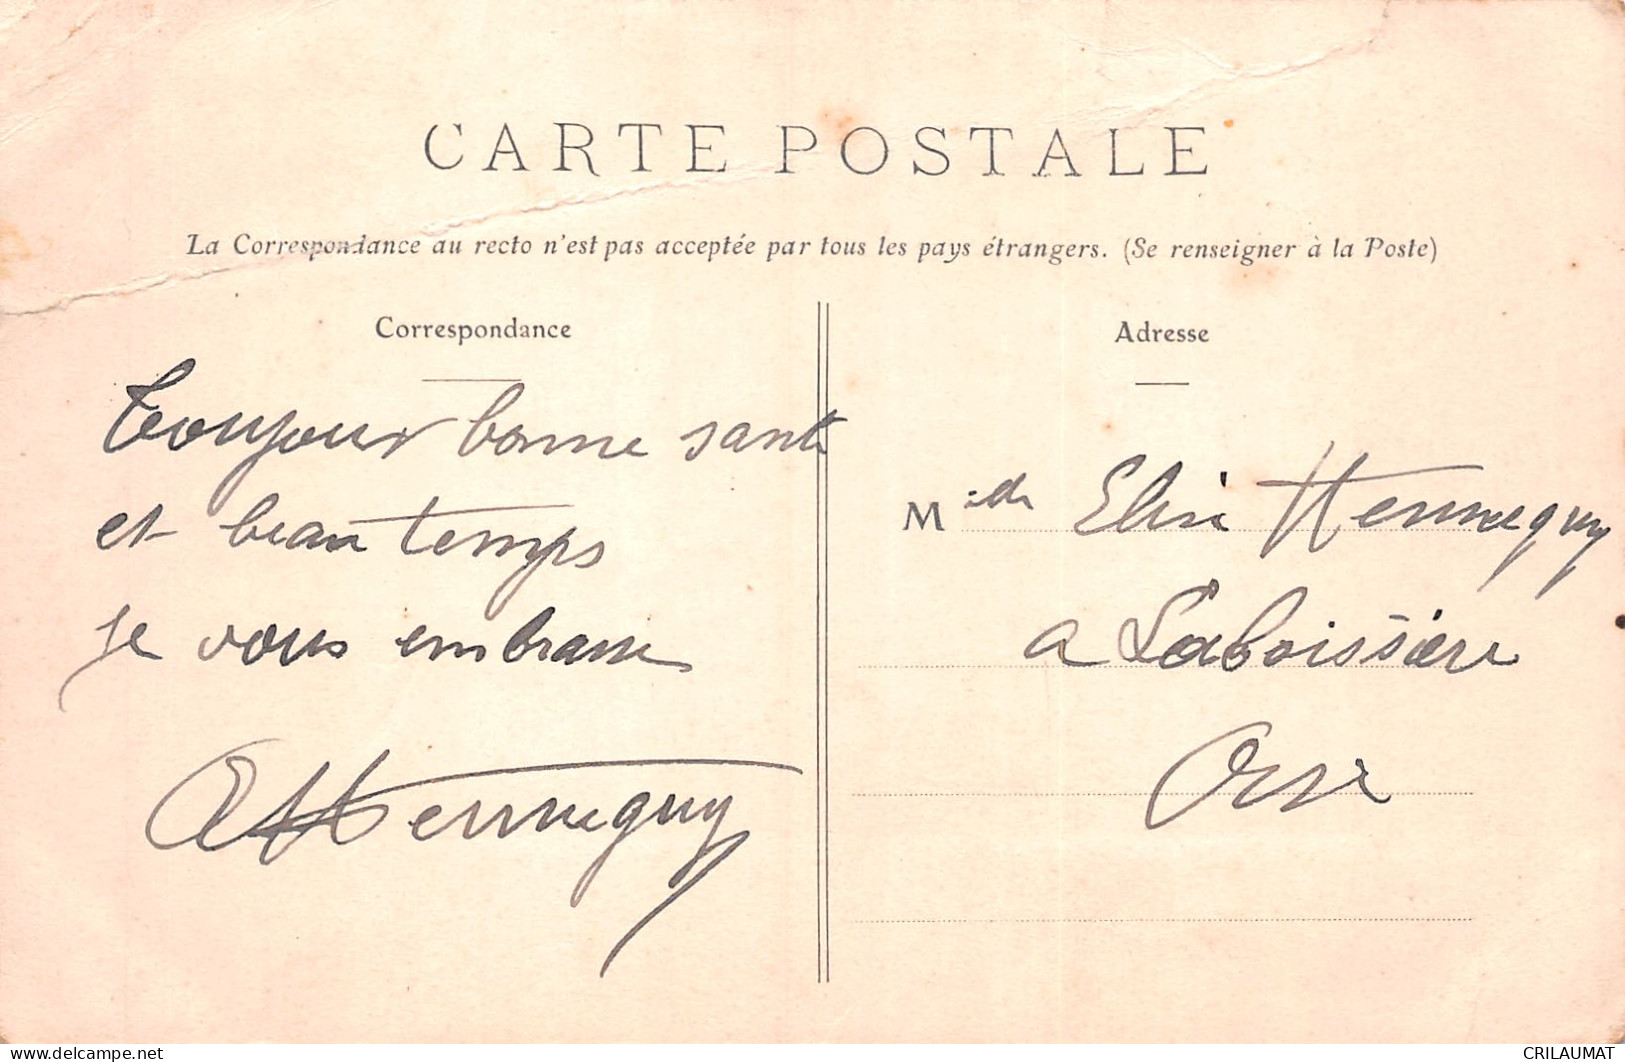 CARTE POSTALE
La Correspondance au recto n'est pas acceptée par tous les pays étrangers. (Se renseigner à la Poste)
Correspondance
Toujour bonne santé
et beau temps
je vous embrasse
Henneguy
Adresse
M Henneguy
a Laboissière
Oise
www.delcampe.net
CRILAUMAT